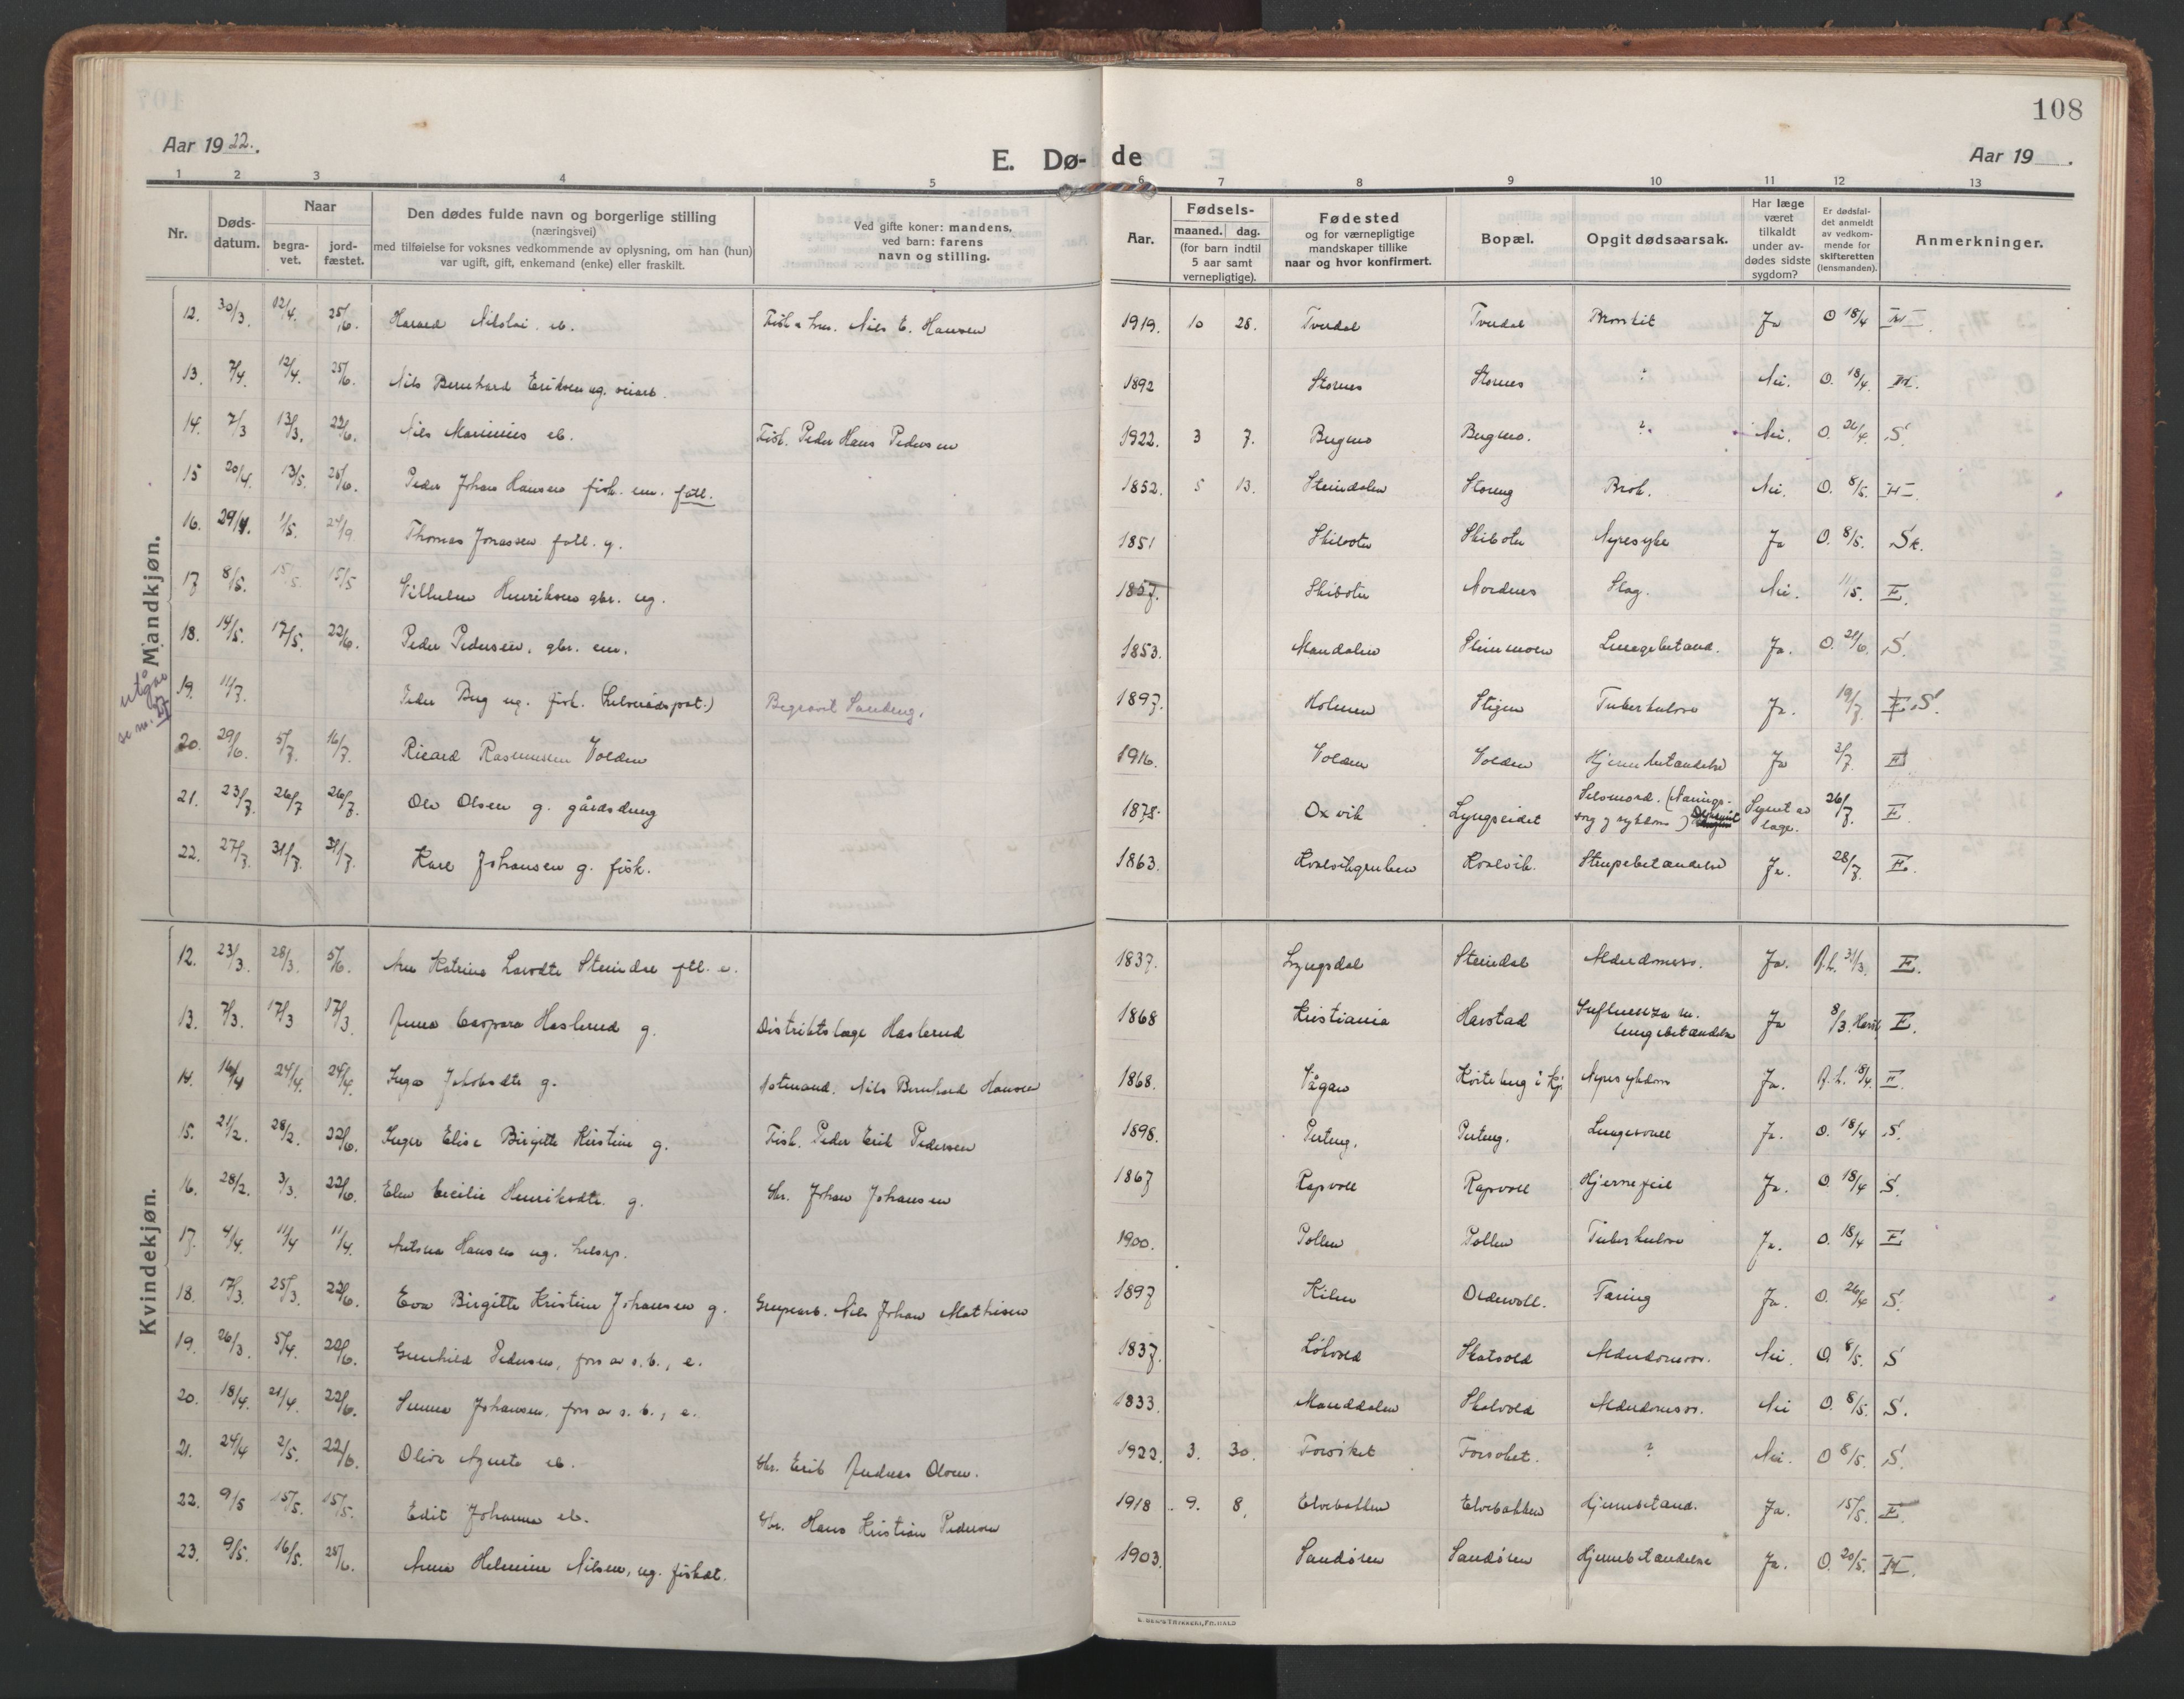 108
Aar 1922.
E. Dø- de
Aar 19 .
1 2 3 4 5 6 7 8 9 10 11 12 13
Nr. Døds-datum. Naar begra-vet. jord-fæstet. Den dødes fulde navn og borgerlige stilling (næringsvei) med tilføielse for voksnes vedkommende av oplysning, om han (hun) var ugift, gift, enkemand (enke) eller fraskilt. Ved gifte koner: mandens, ved barn: farens navn og stilling. Aar. Fødsels- maaned. dag. (for barn indtil 5 aar samt vernepligtige). Fødested og for værnepligtige mandskaper tillike naar og hvor konfirmert. Bopæl. Opgit dødsaarsak. Har læge været tilkaldt under av-dødes sidste sygdom? Er dødsfal-det anmeldt av vedkom-mende for skifteretten (lensmanden). Anmerkninger.
Mandkjøn.
12. 30/3. 12/4. 25/6. Harald Nikolai eb. Nils E. Hansen 1919. 10 28. Tverdal Tverdal Bronkit Ja O 18/4 H
13. 7/4. 12/4. 25/6. Nils Bernhard Eriksen ug. veiarb. 1892 Skornes Skornes ? Nei. O. 18/4. H.
14. 7/3 13/3. 22/6. Nils Marinius eb. Fisk. Peder Hans Pedersen 1922. 3 7. Bugmo Bugmo. ? Nei. O. 26/4. S.
15 20/4. 13/5. 25/6. Peder Johan Hansen fisk. em. fatt. 1852. 5 13. Steindalen Skoreng Brok. Nei. O. 8/5. H
16. 29/4. 1/5. 24/9. Thomas Jonassen fatt. g. 1851 Skibotn Skibotn Nyresyke Ja O. 8/5. Sk.
17 8/5. 15/5. 15/5 Vilhelm Henriksen gbr. ug. 1857. Skibotn Nordnes Slag. Nei. 11/5. E.
18. 14/5. 17/5. 22/6. Peder Pedersen, gbr. em. 1853. Mandalen Steinmoen Lungebetænd. Ja. O. 21/6. S.
utgaar se nr. 27
19. 11/7. Peder Bug ug. fisk. Begravet Samueng. 1897. Holmen Stigen Tuberkulose Ja. 19/7. E. S.
20. 29/6. 5/7. 16/7. Rikard Rasmussen Volden 1916. Volden Volden Hjernebetændelse Ja 3/7. E
21. 23/7. 26/7 26/7. Ole Olsen g. gårdsdreng 1878. Oxvik Lyngseidet Selvmord. (Nærings-sorg og sykdom) Synet av læge. 26/7. E
22. 27/7. 31/7. 31/7. Karl Johansen g. fisk. 1863. Kvalvikgrunden Kvalvik. Strupebetændelse Ja. 28/7. E.
Kvindekjøn.
12. 23/3. 28/3. 5/6. Ane Katrine Larsdtr Steindal ftl. e. 1837. Lyngsdal Steindal Alderdomssv. Ja. 31/3. E.
13. 7/3. 17/3 17/3. Anna Caspara Haslerud g. Distriktslæge Haslerud 1868 Kristiania Harstad Influenza m. lungebetændelse Ja 8/3. Harst. E.
14. 16/4 24/4. 24/4. Inga Jakobsdtr g. Notmand. Nils Bernhard Hansen 1868. Vågan Kviteberg i Kj. Nyresykdom Ja. 18/4. E.
15. 21/2. 28/2. 22/6. Inger Elise Birgitte Kristine g. Fisk. Peder Erik Pedersen 1898. Perteng. Perteng. Ja. O. 18/4 S.
16. 28/2. 3/3. 22/6. Elen Cecilie Henriksdtr. g. Gbr. Johan Johansen 1867 Rasvoll Rasvoll Hjernefeil Ja. O. 18/4 S.
17. 4/4. 11/4 11/4. Hansen ug. 1900. Pollen Pollen Tuberkulose Ja. O. 18/4 E
18. 17/3. 25/3. 22/6. Eva Birgitte Kristine Johansen g. Grubearb. Nils Johan Mathisen 1897 Kilen Oldervoll. Tæring Ja. O. 26/4 S.
19. 26/3. 5/4. 22/6. Gunhild Pedersen, fors av s. b., e. 1837. Løkvold Skatvold Alderdomssv. Nei. O 8/5. S
20. 18/4. 21/4. 22/6. Johansen, fors av s. b., e. 1833. Manddalen Skalvold Alderdomssv. Nei O. 8/5. S.
21. 24/4 2/5. 22/6. Olive Agnete eb. Gbr. Erik Andreas Olsen. 1922. 3. 30. ? Nei. O 8/5. S.
22. 9/5 15/5. 15/5. Edit Johanna eb. Gbr. Hans Kristian Pedersen 1918 9. 8. Elvebakken Elvebakken Hjernebetænd. Ja. 15/5. E
23. 9/5. 16/5. 25/6. Anna Helmine Nilsen, ug. fiskdt. 1903. Sandøren Sandøren Hjernebetændelse Ja. O. 20/5. H.